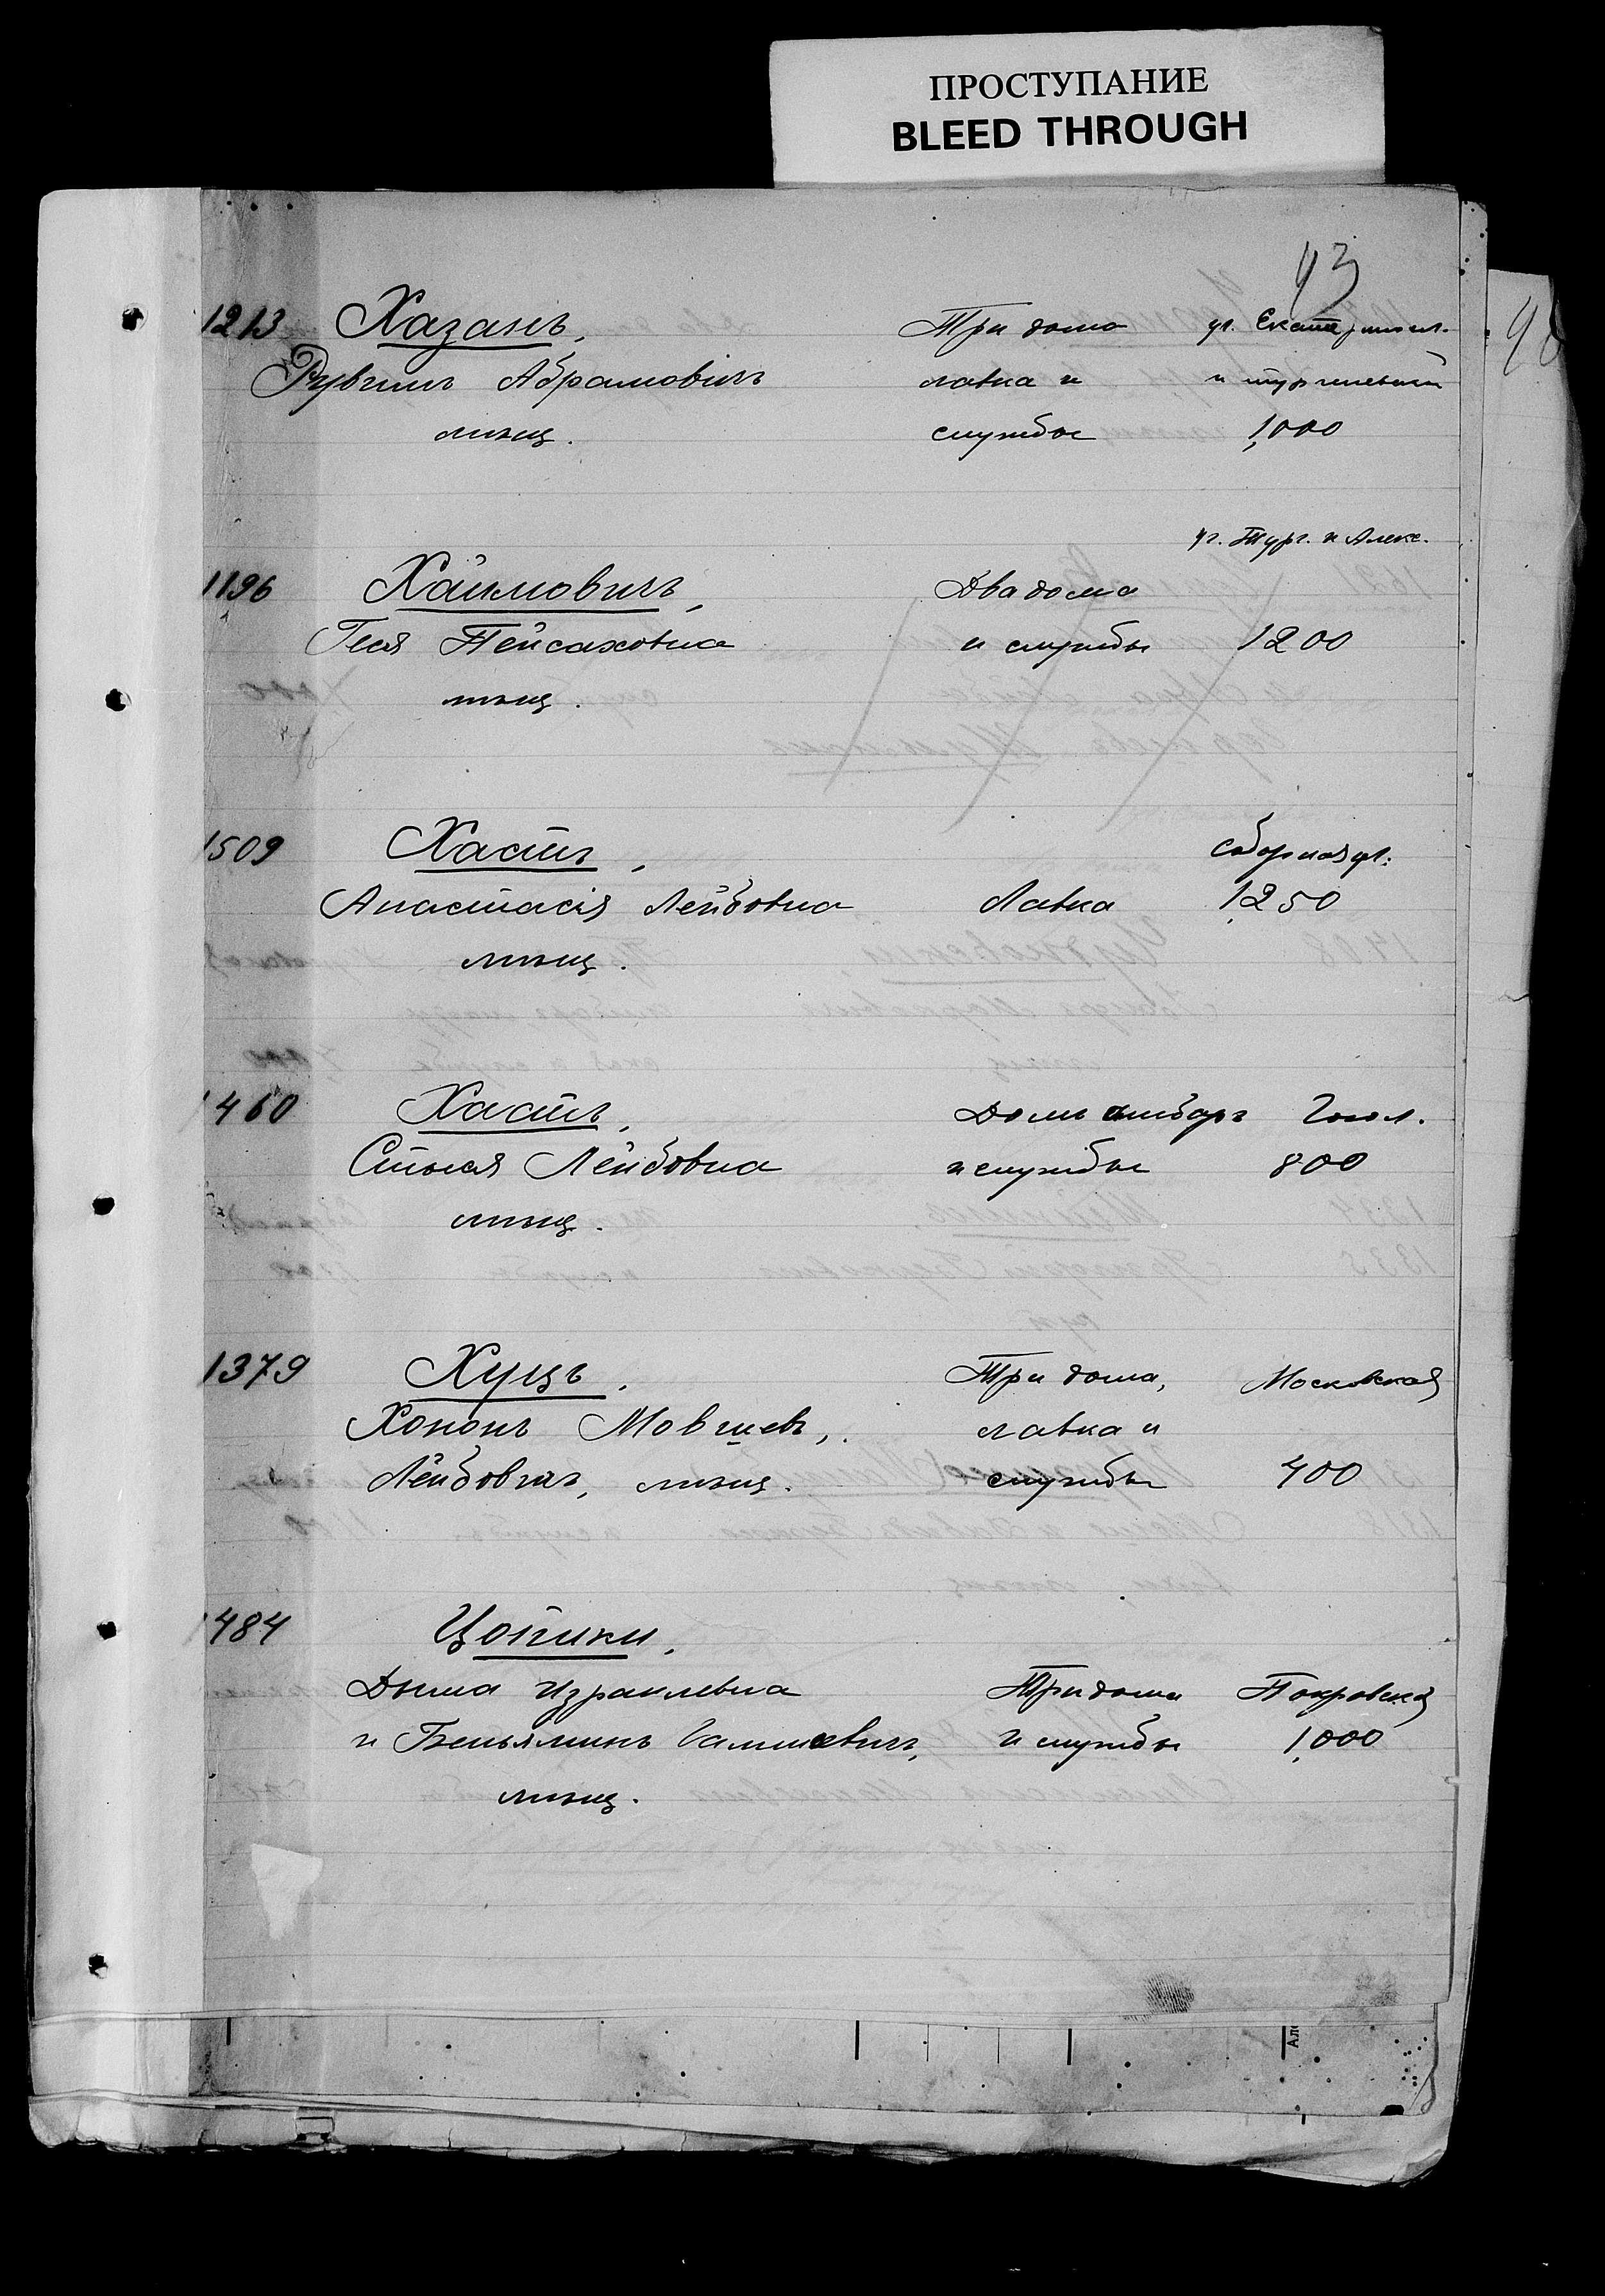 ПРОСТУПАНИЕ
BLEED THROUGH
43
1213 Хазанъ, Три дома уг. Екатеринин.
Рувинъ Абрамовичъ лавка и и тургеневской
мѣщ. службы 1,000
уг. Тург. и Алекс.
1196 Хаимовичъ, Два дома
Геся Пейсаховна и службы 1200
мѣщ.
1509 Хастъ, Соборная ул.
Анастасія Лейбовна Лавка 1,250
мѣщ.
1460 Хастъ, Домъ амбаръ Гогол.
Стыся Лейбовна и службы 800
мѣщ.
1379 Хуцъ, Три дома, Московская
Хононъ Мовшевъ, лавка и
Лейбовичъ, мѣщ. службы 400
1484 Цопики,
Дыша Израилевна Три дома Покровская
и Беньяминъ вичъ, и службы 1,000
мѣщ.